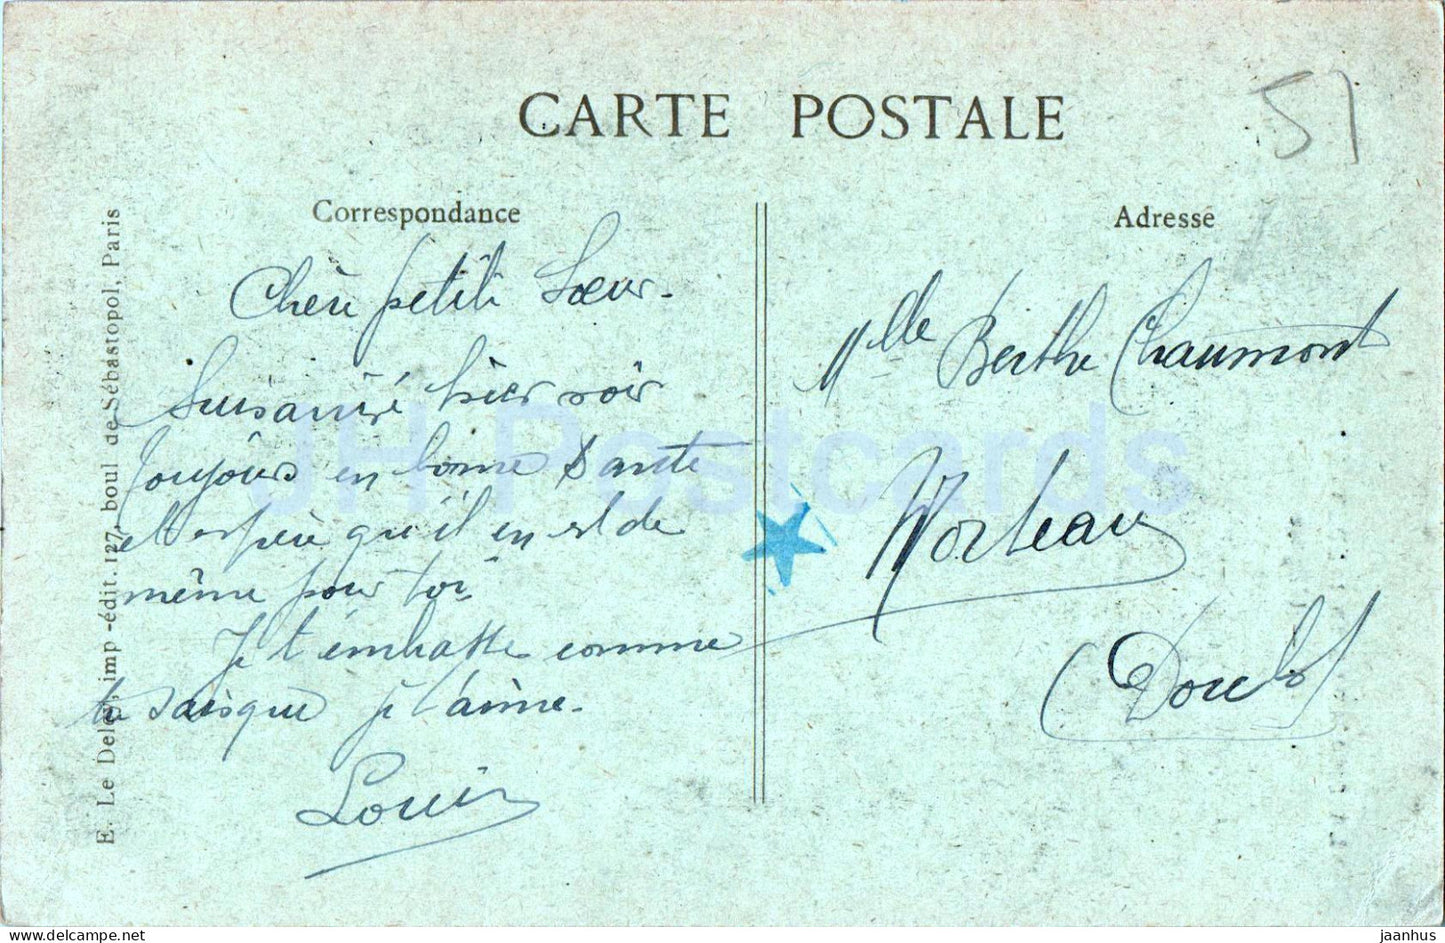 CARTE POSTALE
51
Correspondance
Adresse
Chère petite Sœur.
Suis arrivé hier soir
toujours en bonne Santé
et espère qu'il en est de
même pour toi
Je t'embrasse comme
tu sais que je t'aime.
Louis
Mlle Berthe Chaumont
Morteau
(Doubs)
E. Le Deley, imp-édit. 127, boul de Sébastopol, Paris
JH Postcards
www.delcampe.net
jaanhus